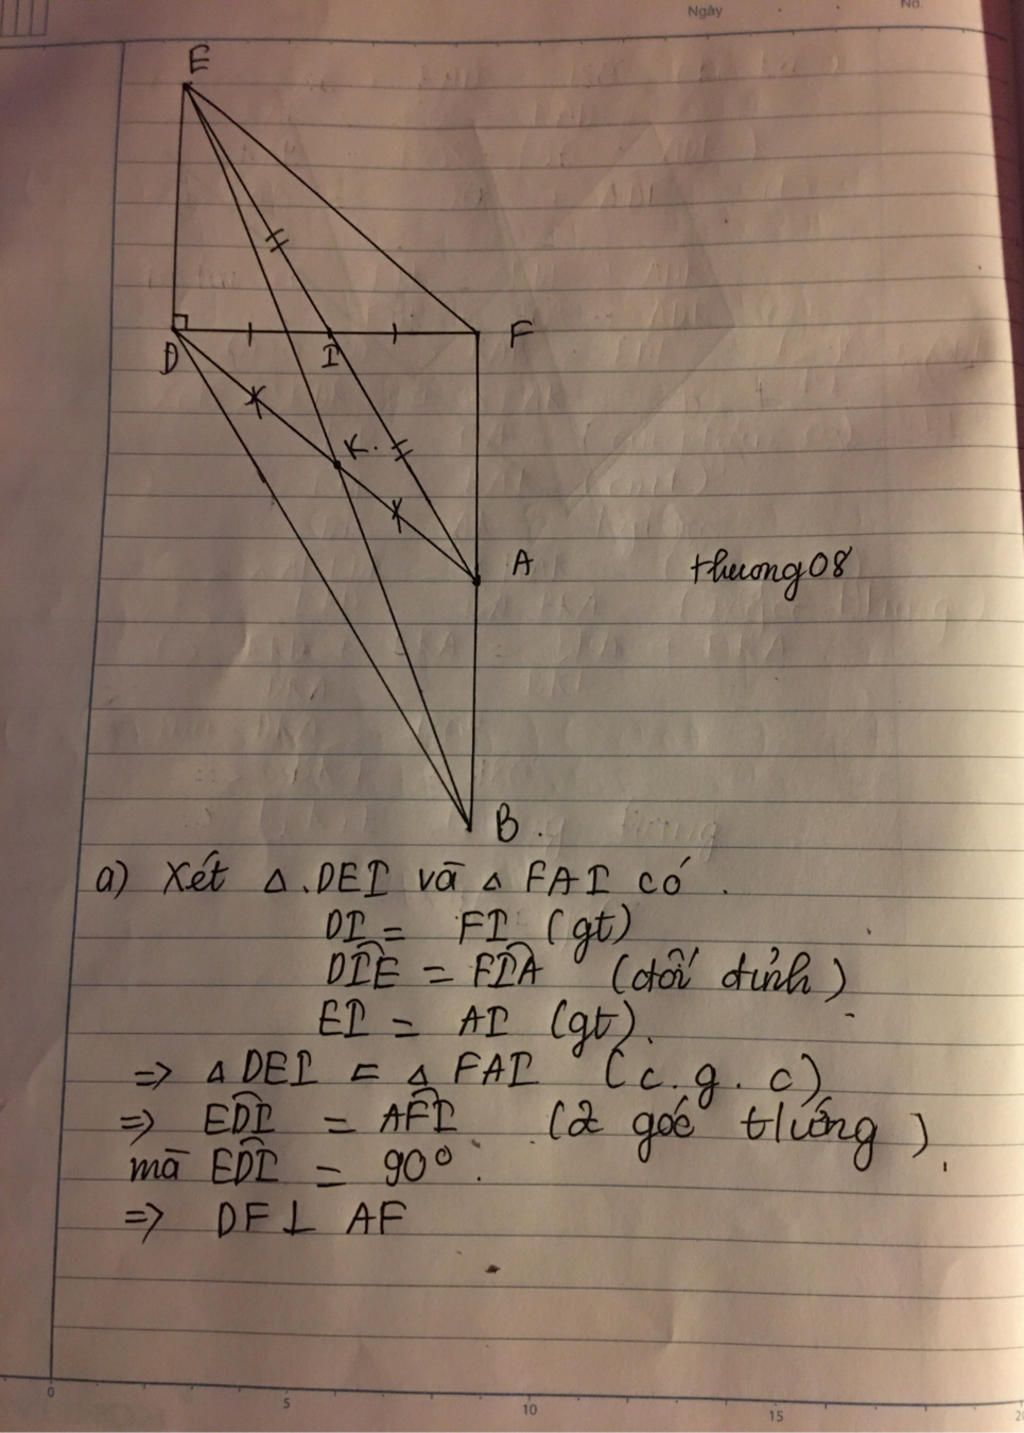 Ngày
No.
E
D
I
F
K.
A
thuong08
B.
a) Xét Δ.DEI và Δ FAI có.
DI = FI (gt)
DIE = FIA (đối đỉnh)
EI = AI (gt).
=> Δ DEI = Δ FAI (c.g.c)
=> EDI = AFI (2 góc tứng),
mà EDI = 90°.
=> DF ⊥ AF
0 5 10 15